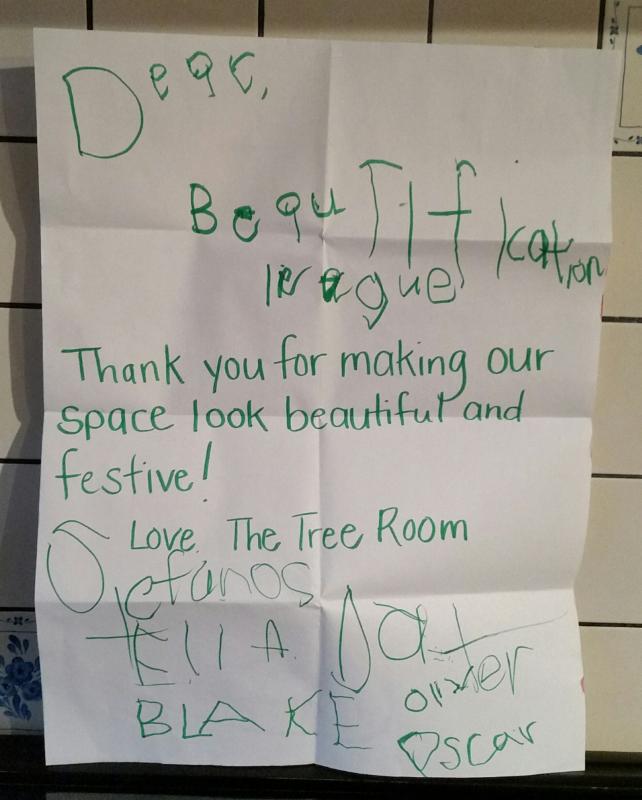 Dear,
BeauTIfication
league
Thank you for making our
space look beautiful and
festive!
Love, The Tree Room
Stefanos
Ella
BLAKE
Oliver
Oscar